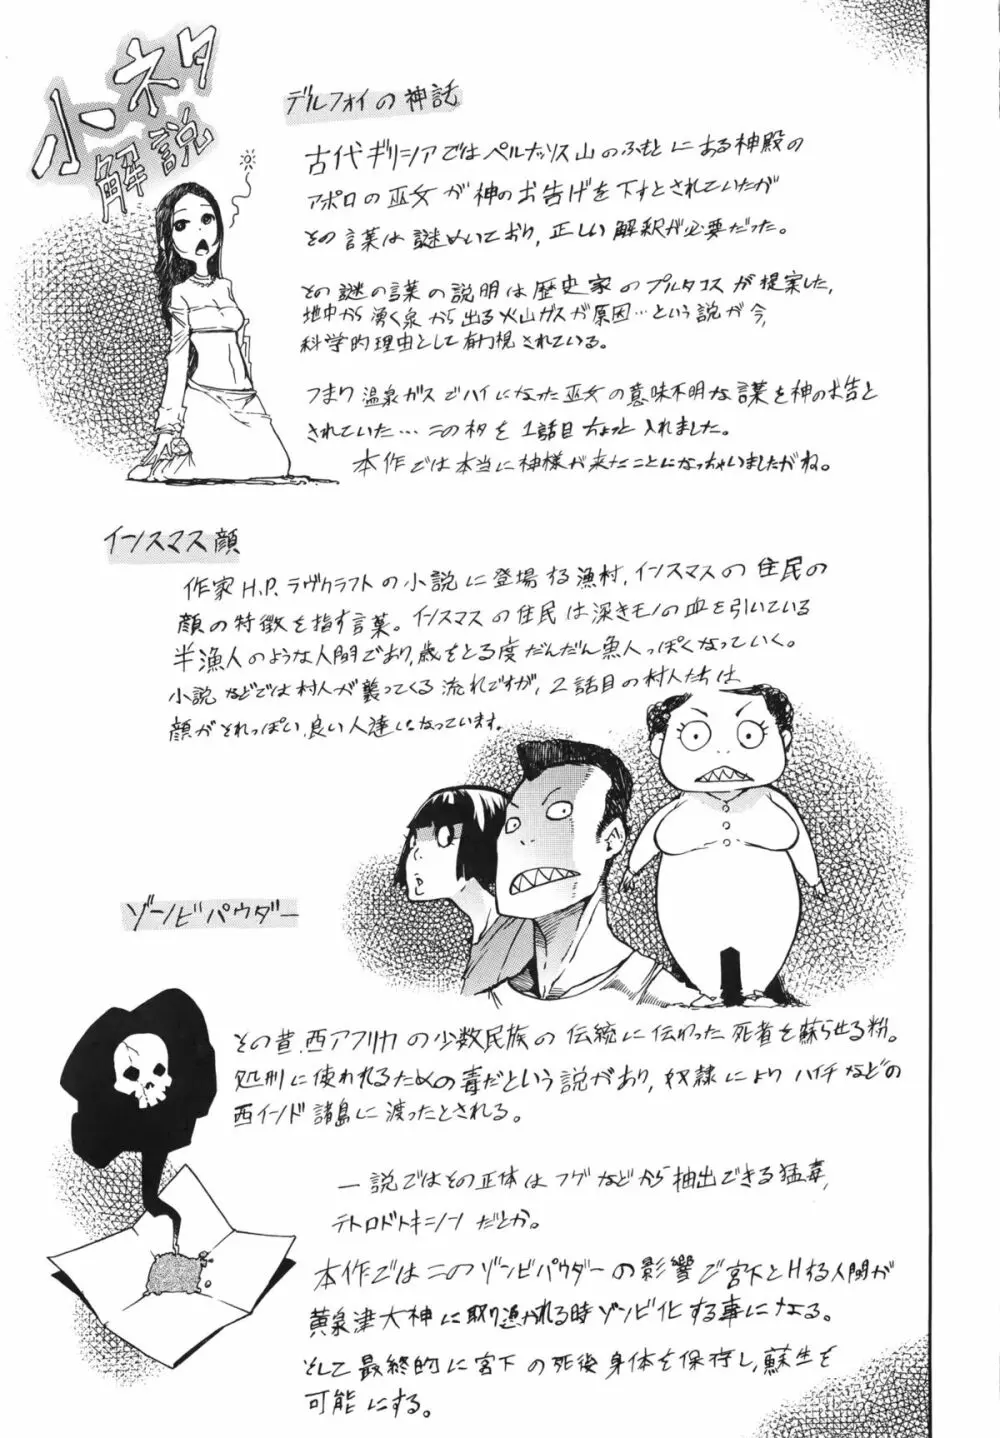 小ネタ
解説
デルフォイの神託
古代ギリシアではペルナッソス山のふもとにある神殿の
アポロの巫女が神のお告げを下すとされていたが
その言葉は謎めいており、正しい解釈が必要だった。
その謎の言葉の説明は歴史家のプルタコスが提案した、
地中から湧く泉から出る火山ガスが原因…という説が今、
科学的理由として有力視されている。
つまり温泉ガスでハイになった巫女の意味不明な言葉を神のお告と
されていた…このネタを1話目ちょっと入れました。
本作では本当に神様が来たことになっちゃいましたがね。
インスマス顔
作家H.P.ラヴクラフトの小説に登場する漁村、インスマスの住民の
顔の特徴を指す言葉。インスマスの住民は深きモノの血を引いている
半漁人のような人間であり、歳をとる度だんだん魚人っぽくなっていく。
小説などでは村人が襲ってくる流れですが、2話目の村人たちは
顔がそれっぽい、良い人達になっています。
ゾンビパウダー
その昔、西アフリカの少数民族の伝統に伝わった死者を蘇らせる粉。
処刑に使われるための毒だという説があり、奴隷によりハイチなどの
西インド諸島に渡ったとされる。
一説ではその正体はフグなどから抽出できる猛毒、
テトロドトキシンだとか。
本作ではこのゾンビパウダーの影響で宮下とHする人間が
黄泉津大神に取り憑かれる時ゾンビ化する事になる。
そして最終的に宮下の死後身体を保存し、蘇生を
可能にする。